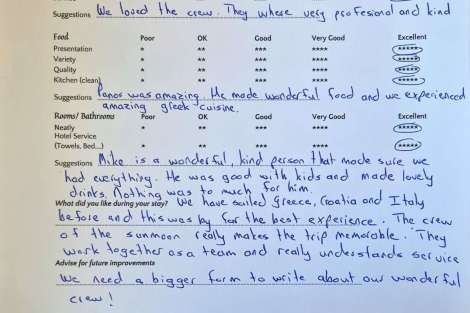 Suggestions We loved the crew. They where very profesional and kind
Food Poor OK Good Very Good Excellent
Presentation * ** *** **** *****
Variety * ** *** **** *****
Quality * ** *** **** *****
Kitchen (clean) * ** *** **** *****
Suggestions Panos was amazing. He made wonderful food and we experienced
amazing greek cuisine.
Rooms/ Bathrooms Poor OK Good Very Good Excellent
Neatly * ** *** **** *****
Hotel Service
(Towels, Bed...) * ** *** **** *****
Suggestions Mike is a wonderful, kind person that made sure we
had everything. He was good with kids and made lovely
drinks. Nothing was to much for him.
What did you like during your stay? We have sailed Greece, Croatia and Italy
before and this was by far the best experience. The crew
of the sunmoon really makes the trip memorable. They
work together as a team and really understands service
Advise for future improvements
We need a bigger form to write about our wonderful
crew!